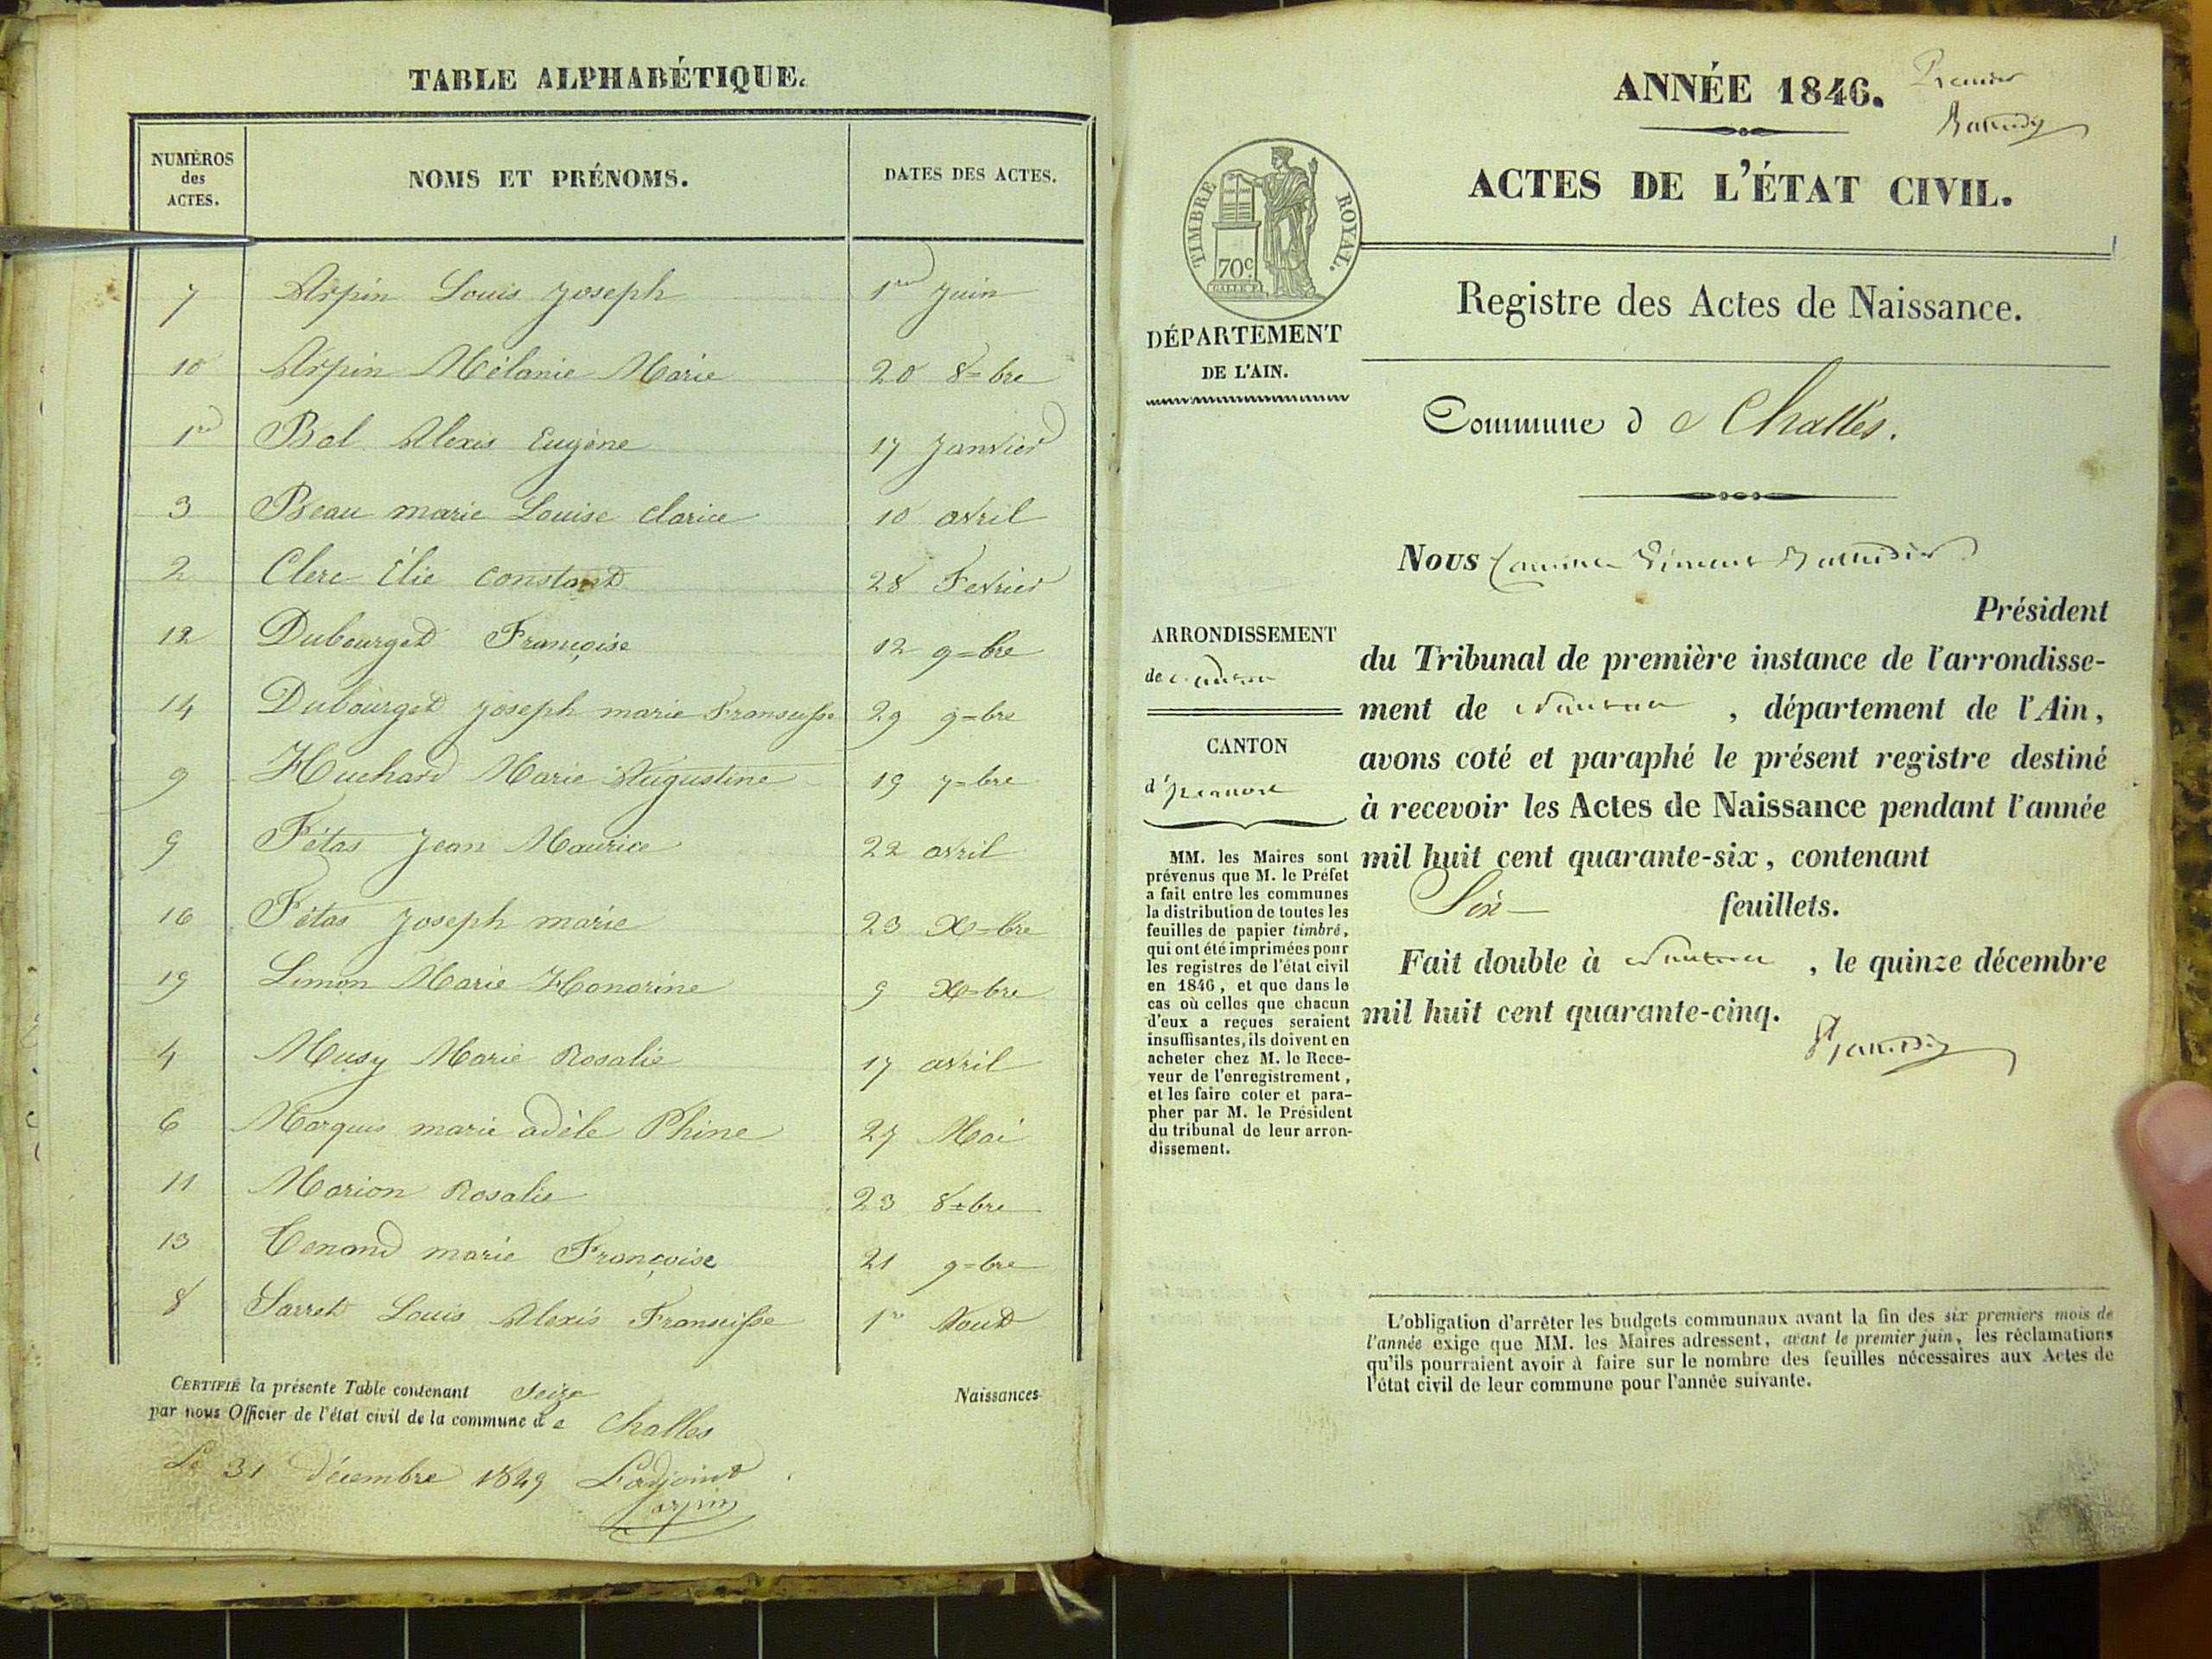 TABLE ALPHABÉTIQUE.
NUMÉROS
des
ACTES.
NOMS ET PRÉNOMS.
DATES DES ACTES.
7 Arpin Louis Joseph 1er Juin
10 Arpin Mélanie Marie 20 8=bre
1er Bal Alexis Eugène 17 Janvier
3 Beau marie Louise clarice 10 avril
2 Clerc Élie constant 28 Fevrier
12 Dubourget Françoise 12 9=bre
14 Dubourget joseph marie 29 9=bre
9 Huchard Marie Augustine 19 7=bre
9 Fétas Jean Maurice 22 avril
16 Fétas Joseph marie 23 X=bre
19 Limon Marie Honorine 9 X=bre
4 Musy Marie Rosalie 17 avril
6 Marquis marie adèle Phine 27 Mai
11 Marion Rosalie 23 8=bre
13 Tenand marie Françoise 21 9=bre
8 Sarret Louis Alexis 1er Aout
CERTIFIÉ la présente Table contenant Seize Naissances
par nous Officier de l'état civil de la commune de Challes
Le 31 Décembre 1849 L'adjoint
arpin
ANNÉE 1846.
Premier
ACTES DE L'ÉTAT CIVIL.
TIMBRE ROYAL.
70c.
Registre des Actes de Naissance.
DÉPARTEMENT
DE L'AIN.
Commune de Challes.
Nous
Président
du Tribunal de première instance de l'arrondisse-
ment de Nantua, département de l'Ain,
avons coté et paraphé le présent registre destiné
à recevoir les Actes de Naissance pendant l'année
mil huit cent quarante-six, contenant
Six feuillets.
Fait double à Nantua, le quinze décembre
mil huit cent quarante-cinq.
ARRONDISSEMENT
de Nantua
CANTON
d'Izernore
MM. les Maires sont
prévenus que M. le Préfet
a fait entre les communes
la distribution de toutes les
feuilles de papier timbré,
qui ont été imprimées pour
les registres de l'état civil
en 1846, et que dans le
cas où celles que chacun
d'eux a reçues seraient
insuffisantes, ils doivent en
acheter chez M. le Rece-
veur de l'enregistrement,
et les faire coter et para-
pher par M. le Président
du tribunal de leur arron-
dissement.
L'obligation d'arrêter les budgets communaux avant la fin des six premiers mois de
l'année exige que MM. les Maires adressent, avant le premier juin, les réclamations
qu'ils pourraient avoir à faire sur le nombre des feuilles nécessaires aux Actes de
l'état civil de leur commune pour l'année suivante.